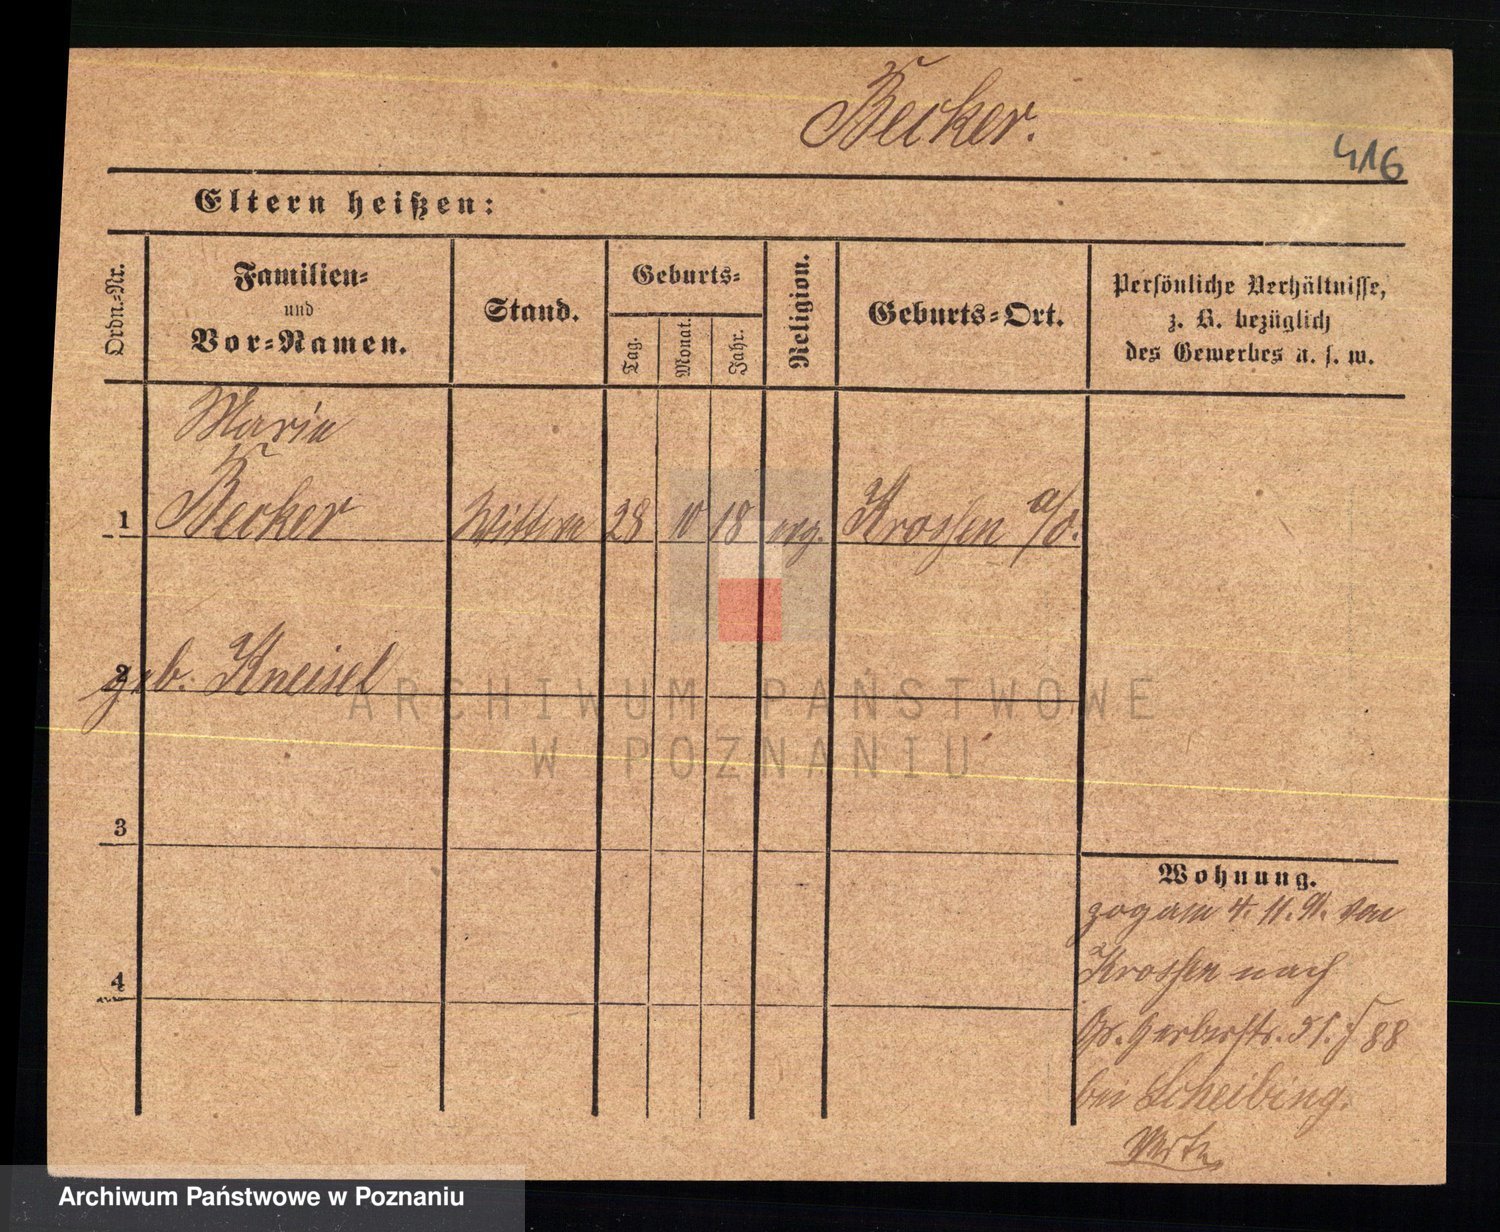 Becker.
416
Eltern heißen:
Ordn.-Nr.
Familien-
und
Vor-Namen.
Stand.
Geburts-
Tag.
Monat.
Jahr.
Religion.
Geburts-Ort.
Persönliche Verhältnisse,
z. B. bezüglich
des Gewerbes u. s. w.
Marie
1 Becker Wittwe 28 10 18 evg. Krossen a/O.
2 geb. Kneisel
3
4
Wohnung.
zog am 4. 11. 91. von
Krossen nach
Gr. Gerberstr. 51. 88
bei Scheibing.
ARCHIWUM PAŃSTWOWE
W POZNANIU
Archiwum Państwowe w Poznaniu